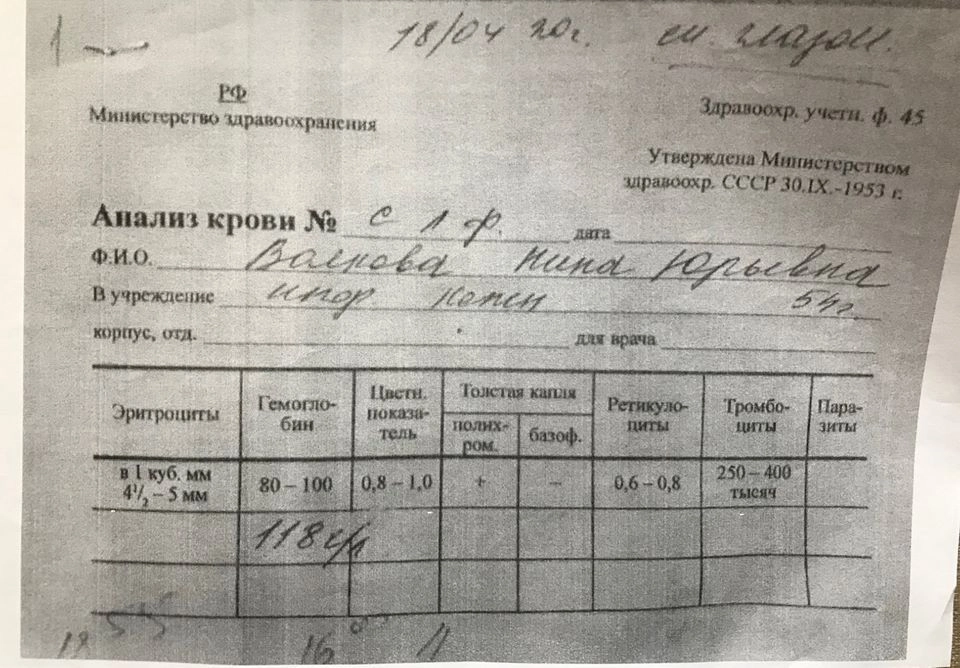 18/04 20г.
РФ
Министерство здравоохранения
Здравоохр. учетн. ф. 45
Утверждена Министерством
здравоохр. СССР 30.IX.-1953 г.
Анализ крови № с л ф. дата
Ф.И.О. Волкова Нина Юрьевна
В учреждение 54г.
корпус, отд. для врача
Эритроциты Гемогло-бин Цветн. показа-тель Толстая капля полих-ром. базоф. Ретикуло-циты Тромбо-циты Пара-зиты
в 1 куб. мм 4 1/2 – 5 мм 80 – 100 0,8 – 1,0 + – 0,6 – 0,8 250 – 400 тысяч
118 г/л